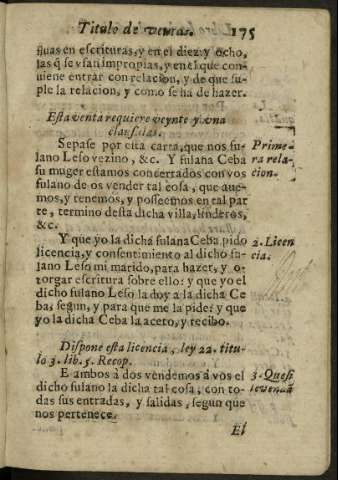 Titulo de ventas. 175
siuas en escrituras, y en el diez y ocho,
las q̃ se vsan impropias, y en el que con-
uiene entrar con relacion, y de que su-
ple la relacion, y como se ha de hazer.
Esta venta requiere veynte y vna
clausulas.
Sepase por esta carta, que nos fu-
lano Leso vezino, &c. Y fulana Ceba
su muger estamos concertados con vos
fulano de os vender tal cosa, que aue-
mos, y tenemos, y posseemos en tal par
te, termino desta dicha villa, linderos,
&c.
Prime-
ra rela-
cion.
Y que yo la dicha fulana Ceba pido
licencia, y consentimiento al dicho fu-
lano Leso mi marido, para hazer, y o-
torgar escritura sobre ello: y que yo el
dicho fulano Leso la doy a la dicha Ce
ba, segun, y para que me la pide: y que
yo la dicha Ceba la aceto, y recibo.
2. Licen
cia.
Dispone esta licencia, ley 22. titu-
lo 3. lib. 5. Recop.
E ambos à dos vendemos à vos el
dicho fulano la dicha tal cosa, con to-
das sus entradas, y salidas, segun que
nos pertenece.
3. Quese
le venda
El